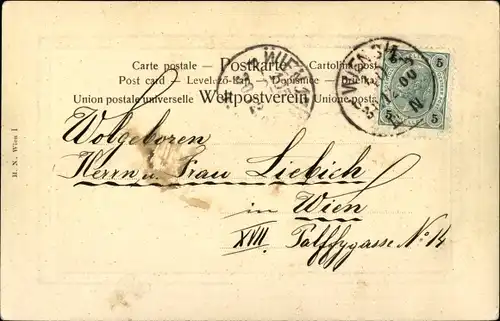 Carte postale — Postkarte — Cartolina post
Post card — Levelező-Lap — Dopisnice — Briefka
Union postale universelle Weltpostverein Unione posta
WIEN
WIEN
5 5
5 5
Wolgeboren
Herrn u. Frau Liebich
in Wien
XVII. Palffygasse No 14
B. N., Wien I